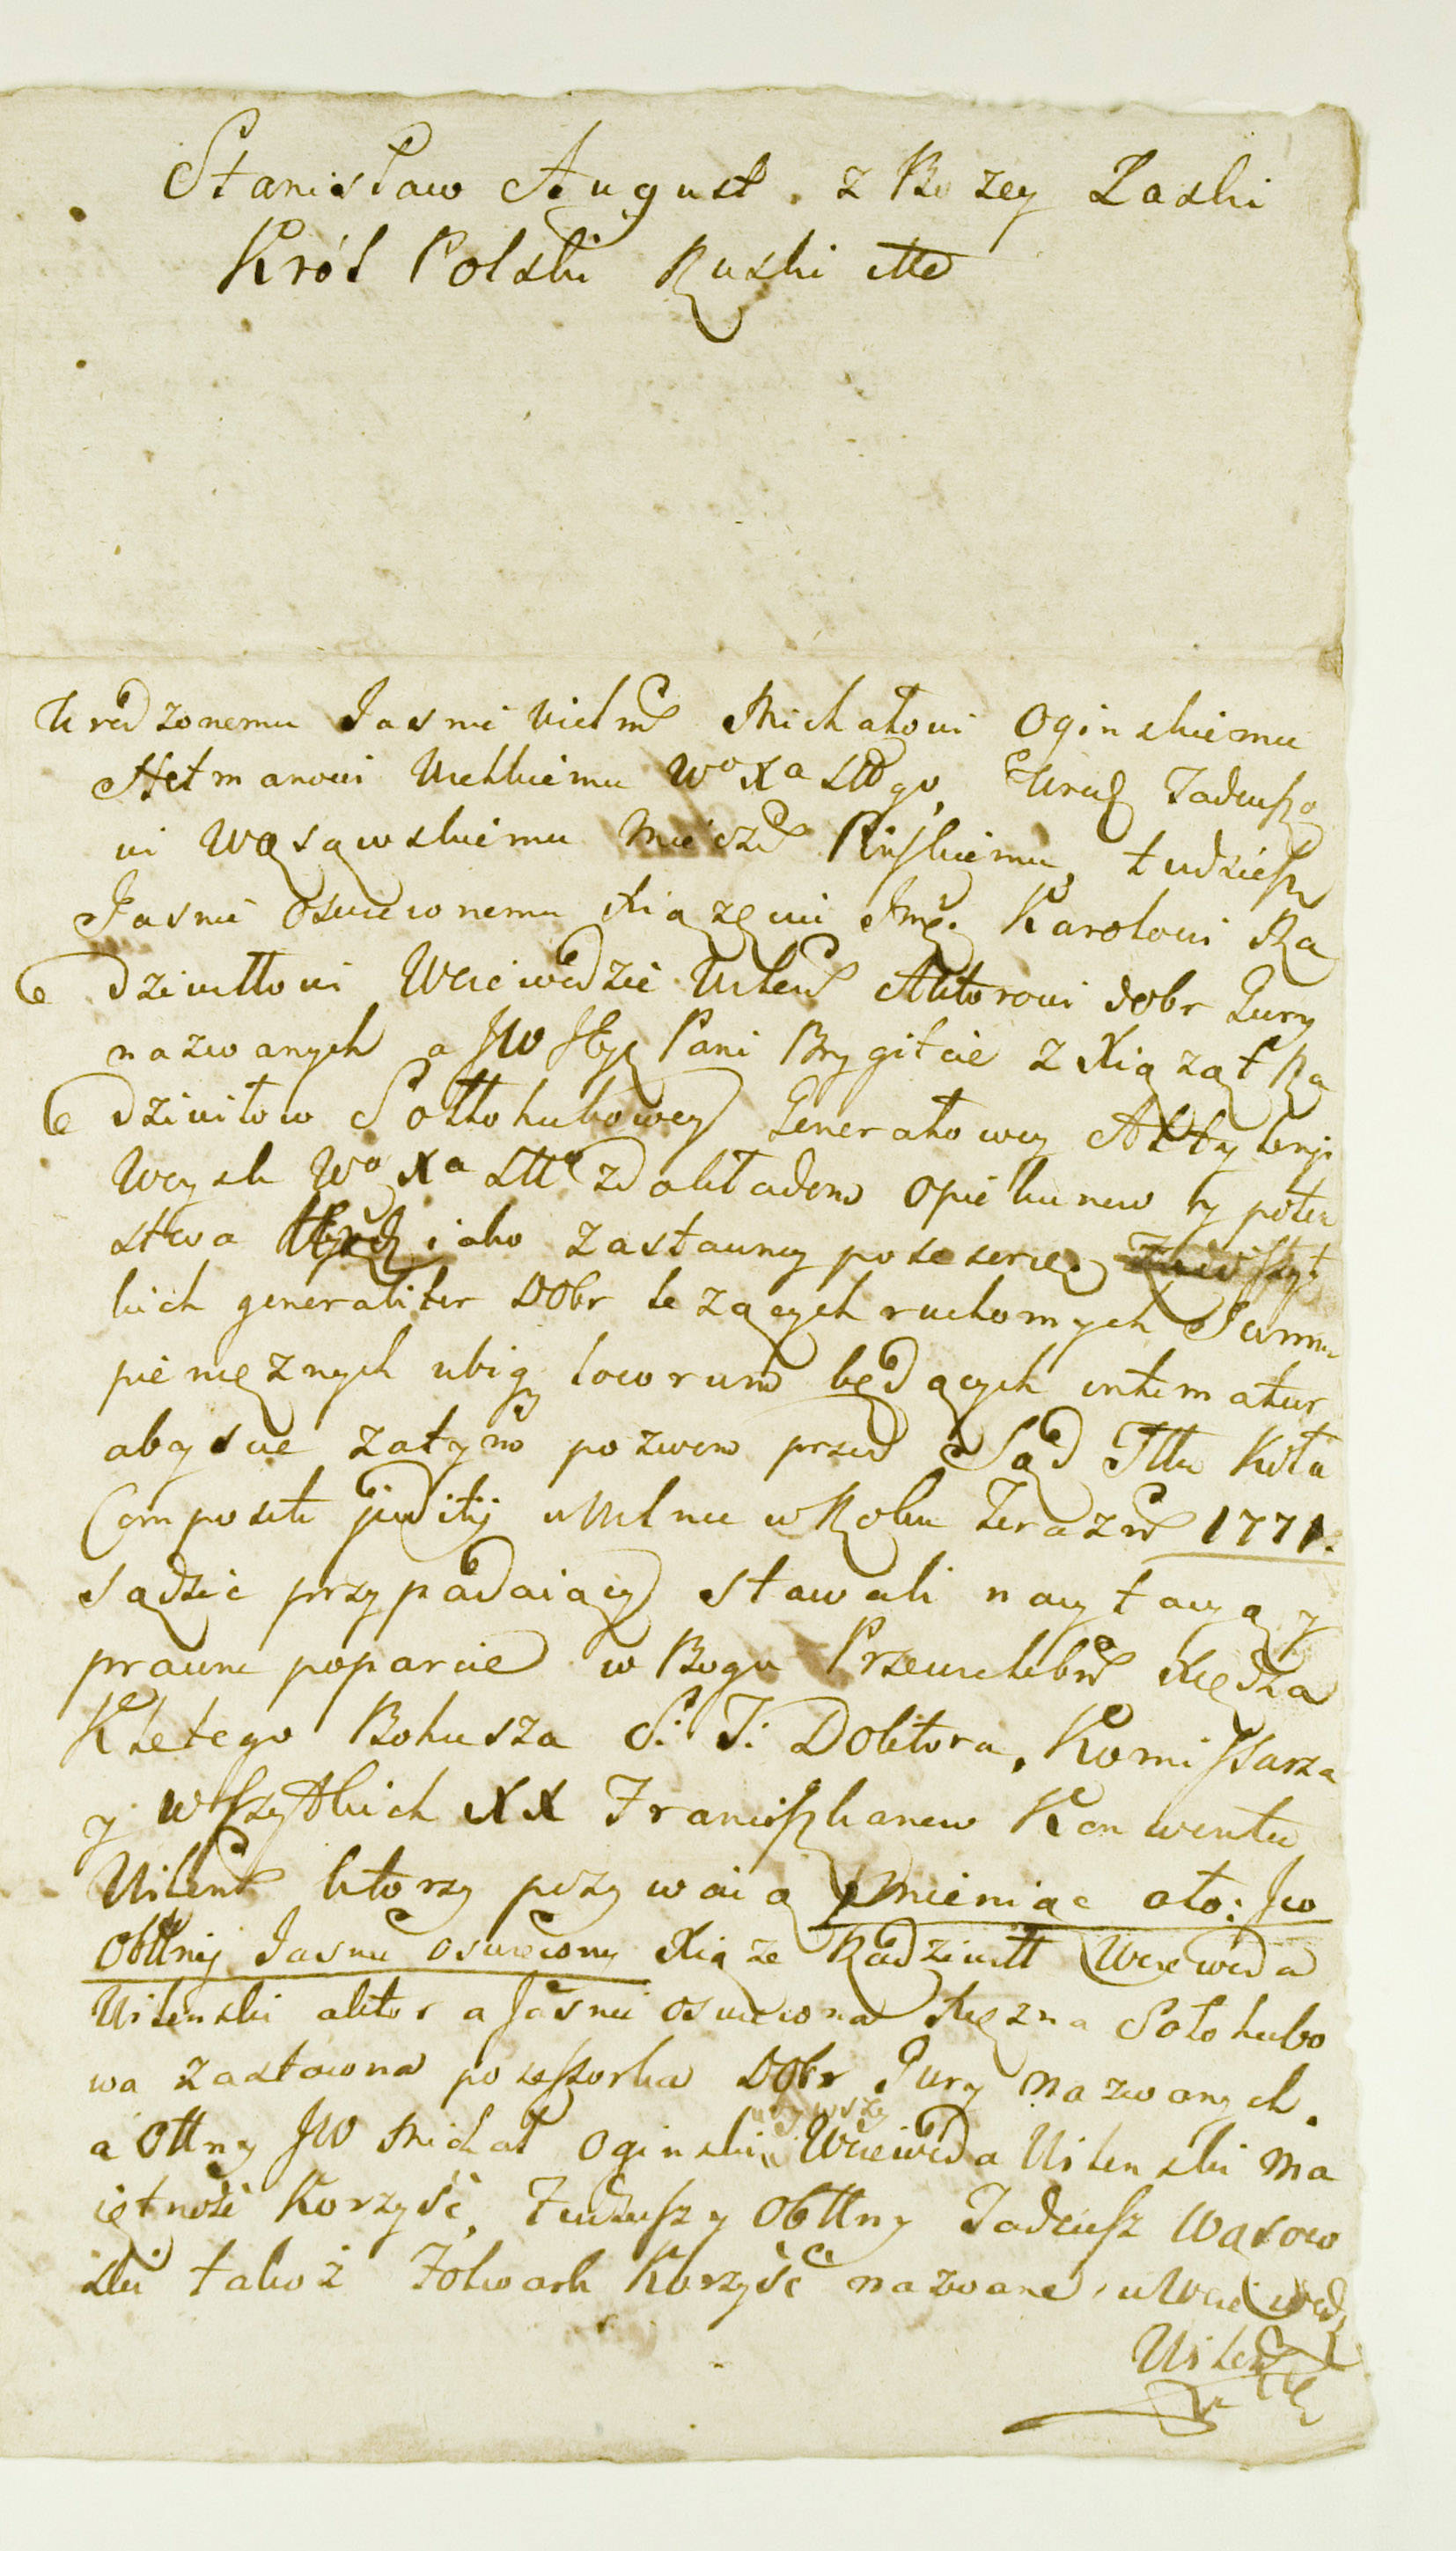 Stanisław August z Bozey Łaski
Król Polski Ruski etc
Urodzonemu Jasnie Wielm Michałowi Oginskiemu
Hetmanowi Wielkiemu Wo Xa Litgo, Urodz Tadeuszo
wi Wąsowskiemu Mieczn Pinskiemu, tudziesz
Jasnie Oswieconemu Xiązęciu Jmę. Karolowi Ra
dziwiłłowi Woiewodzie Wilen Aktorowi dobr Gury
nazwanych a JW Jey Pani Brygitcie z Xiąząt Ra
dziwiłow Sołłohubowey Generałowey Artyleryi
Woysk Wo Xa Litt z dokładem Opiekunow y poten
stwa iako zastawney posesorce
kich generaliter Dobr lezących ruchomych Summ
pienięznych ubiq locorum będących intimatur
abyscie zatym pozwem przed Sąd Tttu Koła
Compositi juditij w Wilnie w Roku Terazn 1771.
sądzic przypadaiący stawali na
prawne poparcie w Bogu Przewielebn Xiędza
Kletego Bohusza S: T: Doktora, Komissarza
y wszystkich XX Franciszkanow Konwentu
Wilen ktorzy pozywaią mieniąc oto: Iw
Obttnij Jasnie oswiecony Xiąze Radziwiłł Woiewoda
Wilenski aktor a Jasnie oswiecona Xięzna Sołohubo
wa zastawna posessorka Dobr Gury nazwanych.
a Ottny JW Michał Oginski Woiewoda Wilenski Ma
iętnośc Korzyść, Tudziesz y Obttny Tadeusz Wąsow
ski takoż Folwark Korzyść nazwane, w Woiewodz
Wilen